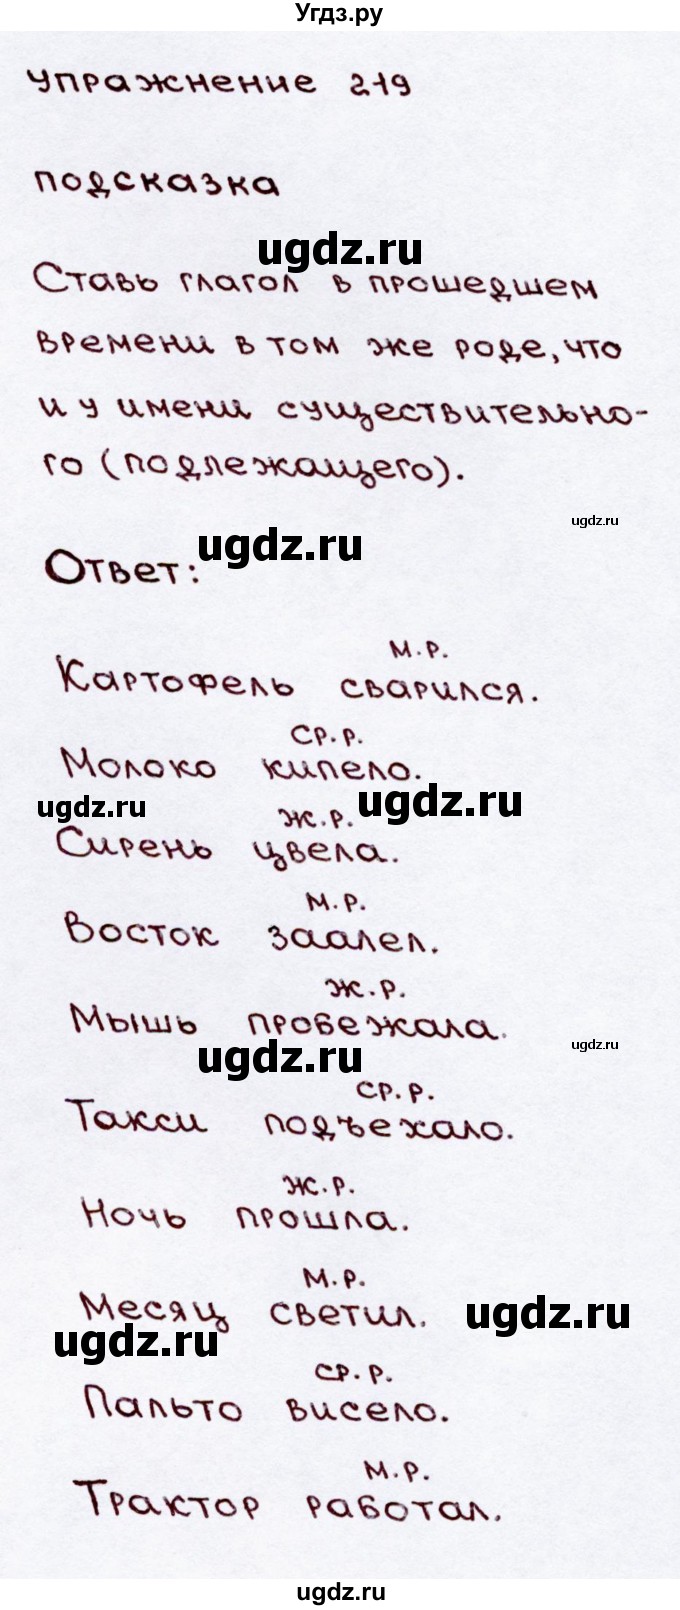 Угдз.ру
упражнение 219
подсказка
ugdz.ru
Ставь глагол в прошедшем
времени в том же роде, что
и у имени существительно-
го (подлежащего).
ugdz.ru
ugdz.ru
Ответ:
м.р.
Картофель сварился.
ср.р.
Молоко кипело.
ugdz.ru
ugdz.ru
ж.р.
Сирень цвела.
м.р.
Восток заалел.
ж.р.
Мышь пробежала.
ugdz.ru
ugdz.ru
ср.р.
Такси подъехало.
ж.р.
Ночь прошла.
м.р.
Месяц светил.
ugdz.ru
ugdz.ru
ср.р.
Пальто висело.
м.р.
Трактор работал.
ugdz.ru